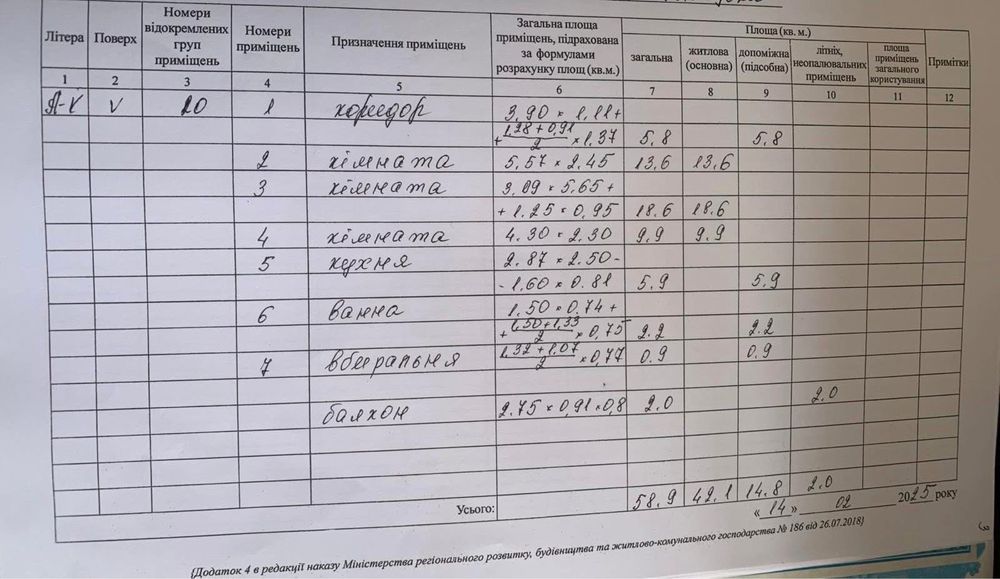 Літера Поверх Номери відокремлених груп приміщень Номери приміщень Призначення приміщень Загальна площа приміщень, підрахована за формулами розрахунку площ (кв.м.) Площа (кв. м.) Примітки
загальна житлова (основна) допоміжна (підсобна) літніх, неопалювальних приміщень площа приміщень загального користування
1 2 3 4 5 6 7 8 9 10 11 12
А-V V 20 1 коридор 3,90 × 1.11+
+ 1,28 + 0,91 / 2 × 1.37 5,8 5,8
2 кімната 5,57 × 2,45 13,6 13,6
3 кімната 3,09 × 5,65 +
+ 1.25 × 0,95 18.6 18.6
4 кімната 4.30 × 2.30 9,9 9,9
5 кухня 2.87 × 2.50 -
- 1.60 × 0.81 5,9 5,9
6 ванна 1.50 × 0.74 +
+ 1,50 + 1,33 / 2 × 0,75 2.2 2.2
7 вбиральня 1,32 + 1.07 / 2 × 0,77 0.9 0.9
балкон 2.75 × 0,91 × 0,8 2.0 2.0
Усього: 58,9 42,1 14,8 2.0
« 14 » 02 2025 року
{Додаток 4 в редакції наказу Міністерства регіонального розвитку, будівництва та житлово-комунального господарства № 186 від 26.07.2018}